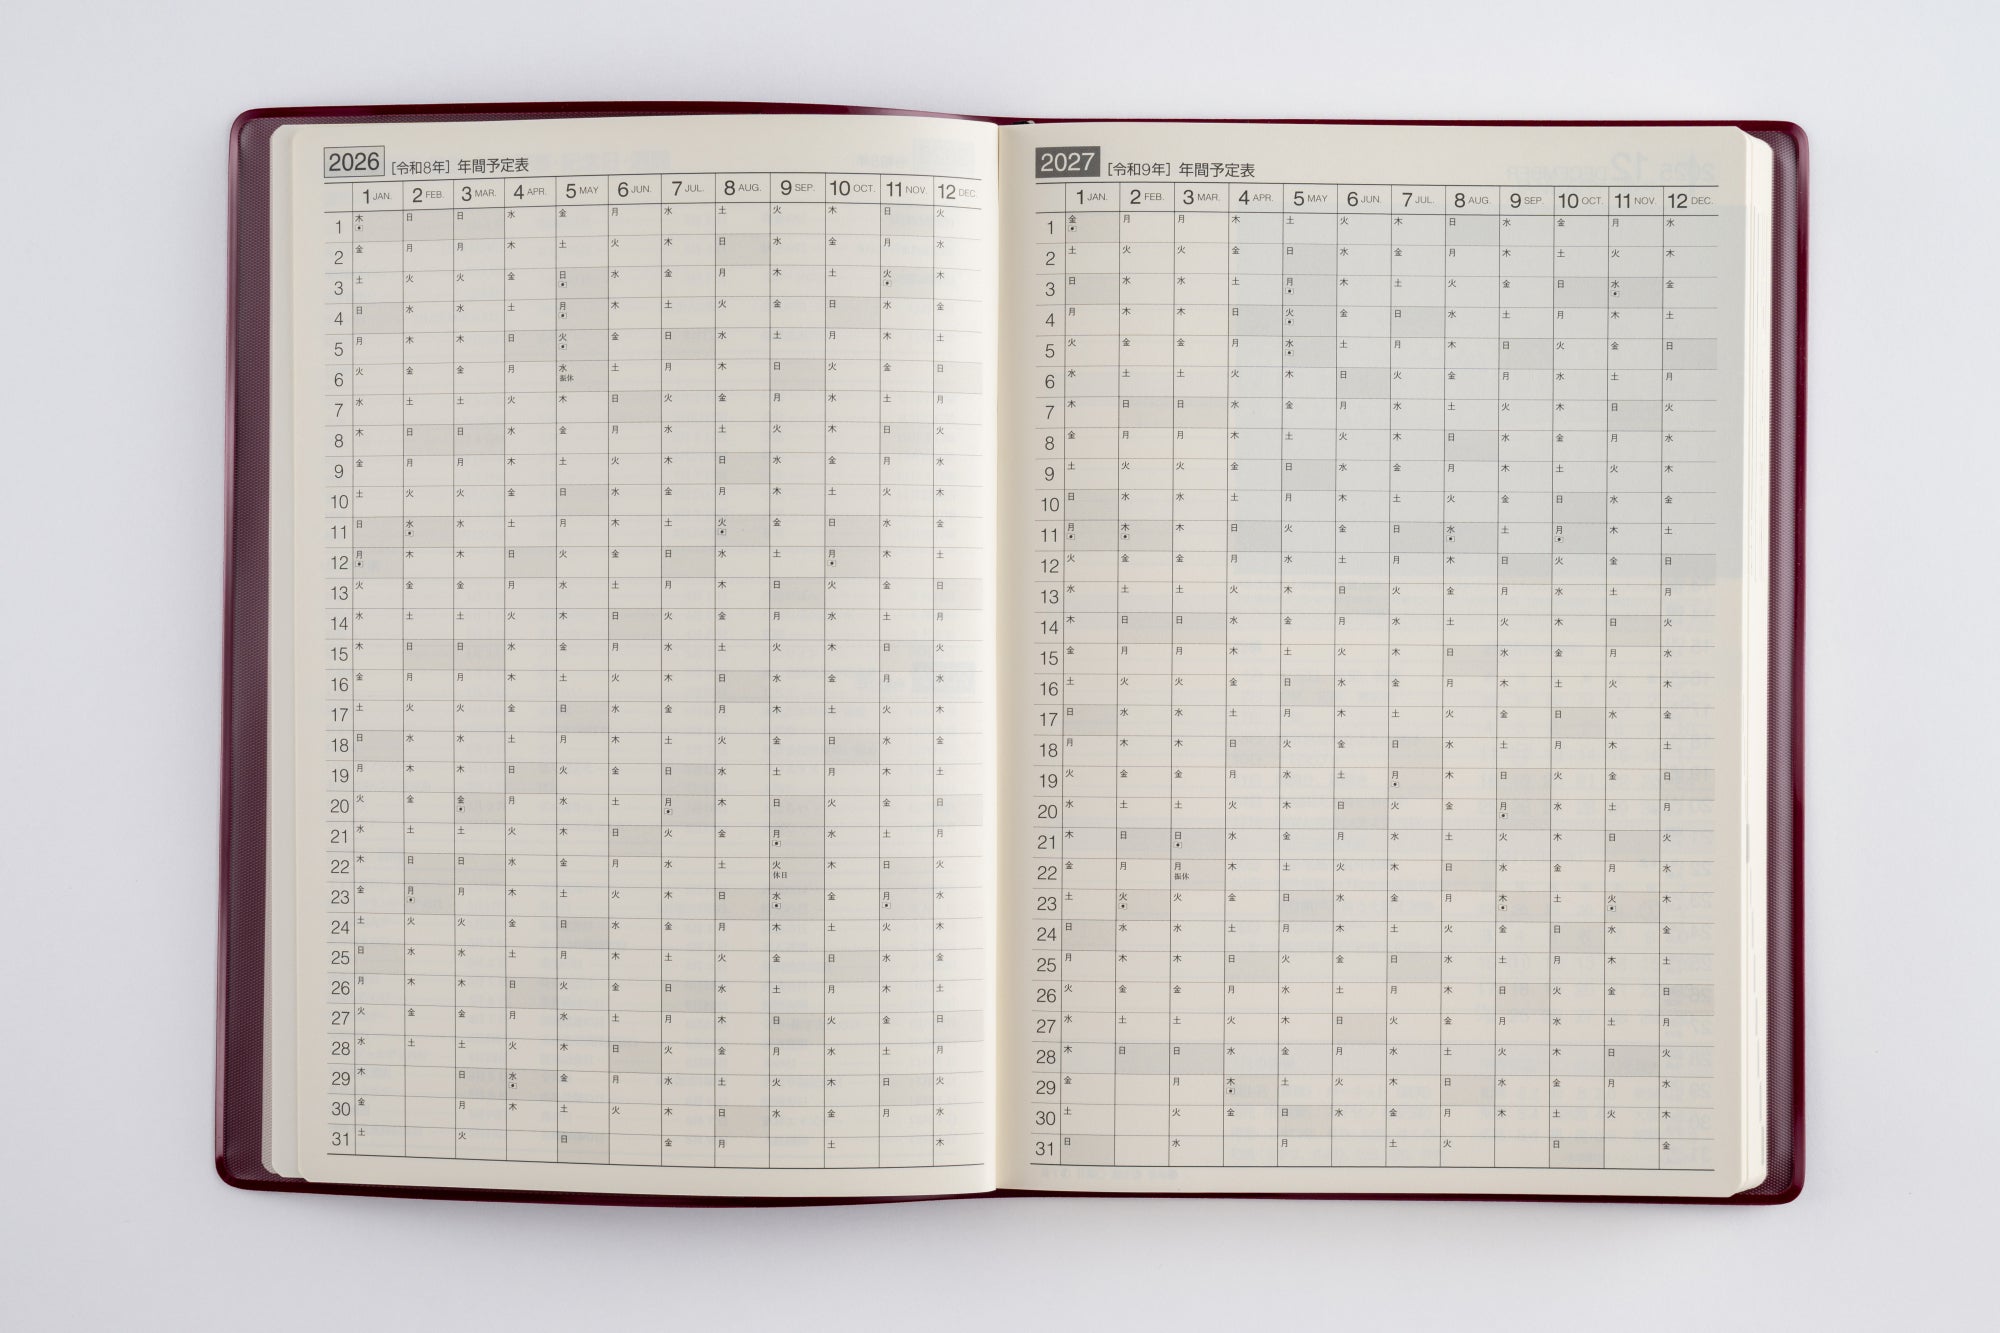 2026 [令和8年] 年間予定表
1 JAN. 2 FEB. 3 MAR. 4 APR. 5 MAY 6 JUN. 7 JUL. 8 AUG. 9 SEP. 10 OCT. 11 NOV. 12 DEC.
1 木 日 日 水 金 月 水 土 火 木 日 火
2 金 月 月 木 土 火 木 日 水 金 月 水
3 土 火 火 金 日 水 金 月 木 土 火 木
4 日 水 水 土 月 木 土 火 金 日 水 金
5 月 木 木 日 火 金 日 水 土 月 木 土
6 火 金 金 月 水 土 月 木 日 火 金 日
振休
7 水 土 土 火 木 日 火 金 月 水 土 月
8 木 日 日 水 金 月 水 土 火 木 日 火
9 金 月 月 木 土 火 木 日 水 金 月 水
10 土 火 火 金 日 水 金 月 木 土 火 木
11 日 水 水 土 月 木 土 火 金 日 水 金
12 月 木 木 日 火 金 日 水 土 月 木 土
13 火 金 金 月 水 土 月 木 日 火 金 日
14 水 土 土 火 木 日 火 金 月 水 土 月
15 木 日 日 水 金 月 水 土 火 木 日 火
16 金 月 月 木 土 火 木 日 水 金 月 水
17 土 火 火 金 日 水 金 月 木 土 火 木
18 日 水 水 土 月 木 土 火 金 日 水 金
19 月 木 木 日 火 金 日 水 土 月 木 土
20 火 金 金 月 水 土 月 木 日 火 金 日
21 水 土 土 火 木 日 火 金 月 水 土 月
22 木 日 日 水 金 月 水 土 火 木 日 火
休日
23 金 月 月 木 土 火 木 日 水 金 月 水
24 土 火 火 金 日 水 金 月 木 土 火 木
25 日 水 水 土 月 木 土 火 金 日 水 金
26 月 木 木 日 火 金 日 水 土 月 木 土
27 火 金 金 月 水 土 月 木 日 火 金 日
28 水 土 土 火 木 日 火 金 月 水 土 月
29 木 日 水 金 月 水 土 火 木 日 火
30 金 月 木 土 火 木 日 水 金 月 水
31 土 火 日 金 月 土 木
2027 [令和9年] 年間予定表
1 JAN. 2 FEB. 3 MAR. 4 APR. 5 MAY 6 JUN. 7 JUL. 8 AUG. 9 SEP. 10 OCT. 11 NOV. 12 DEC.
1 金 月 月 木 土 火 木 日 水 金 月 水
2 土 火 火 金 日 水 金 月 木 土 火 木
3 日 水 水 土 月 木 土 火 金 日 水 金
4 月 木 木 日 火 金 日 水 土 月 木 土
5 火 金 金 月 水 土 月 木 日 火 金 日
6 水 土 土 火 木 日 火 金 月 水 土 月
7 木 日 日 水 金 月 水 土 火 木 日 火
8 金 月 月 木 土 火 木 日 水 金 月 水
9 土 火 火 金 日 水 金 月 木 土 火 木
10 日 水 水 土 月 木 土 火 金 日 水 金
11 月 木 木 日 火 金 日 水 土 月 木 土
12 火 金 金 月 水 土 月 木 日 火 金 日
13 水 土 土 火 木 日 火 金 月 水 土 月
14 木 日 日 水 金 月 水 土 火 木 日 火
15 金 月 月 木 土 火 木 日 水 金 月 水
16 土 火 火 金 日 水 金 月 木 土 火 木
17 日 水 水 土 月 木 土 火 金 日 水 金
18 月 木 木 日 火 金 日 水 土 月 木 土
19 火 金 金 月 水 土 月 木 日 火 金 日
20 水 土 土 火 木 日 火 金 月 水 土 月
21 木 日 日 水 金 月 水 土 火 木 日 火
22 金 月 月 木 土 火 木 日 水 金 月 水
振休
23 土 火 火 金 日 水 金 月 木 土 火 木
24 日 水 水 土 月 木 土 火 金 日 水 金
25 月 木 木 日 火 金 日 水 土 月 木 土
26 火 金 金 月 水 土 月 木 日 火 金 日
27 水 土 土 火 木 日 火 金 月 水 土 月
28 木 日 日 水 金 月 水 土 火 木 日 火
29 金 月 木 土 火 木 日 水 金 月 水
30 土 火 金 日 水 金 月 木 土 火 木
31 日 水 月 土 火 日 金